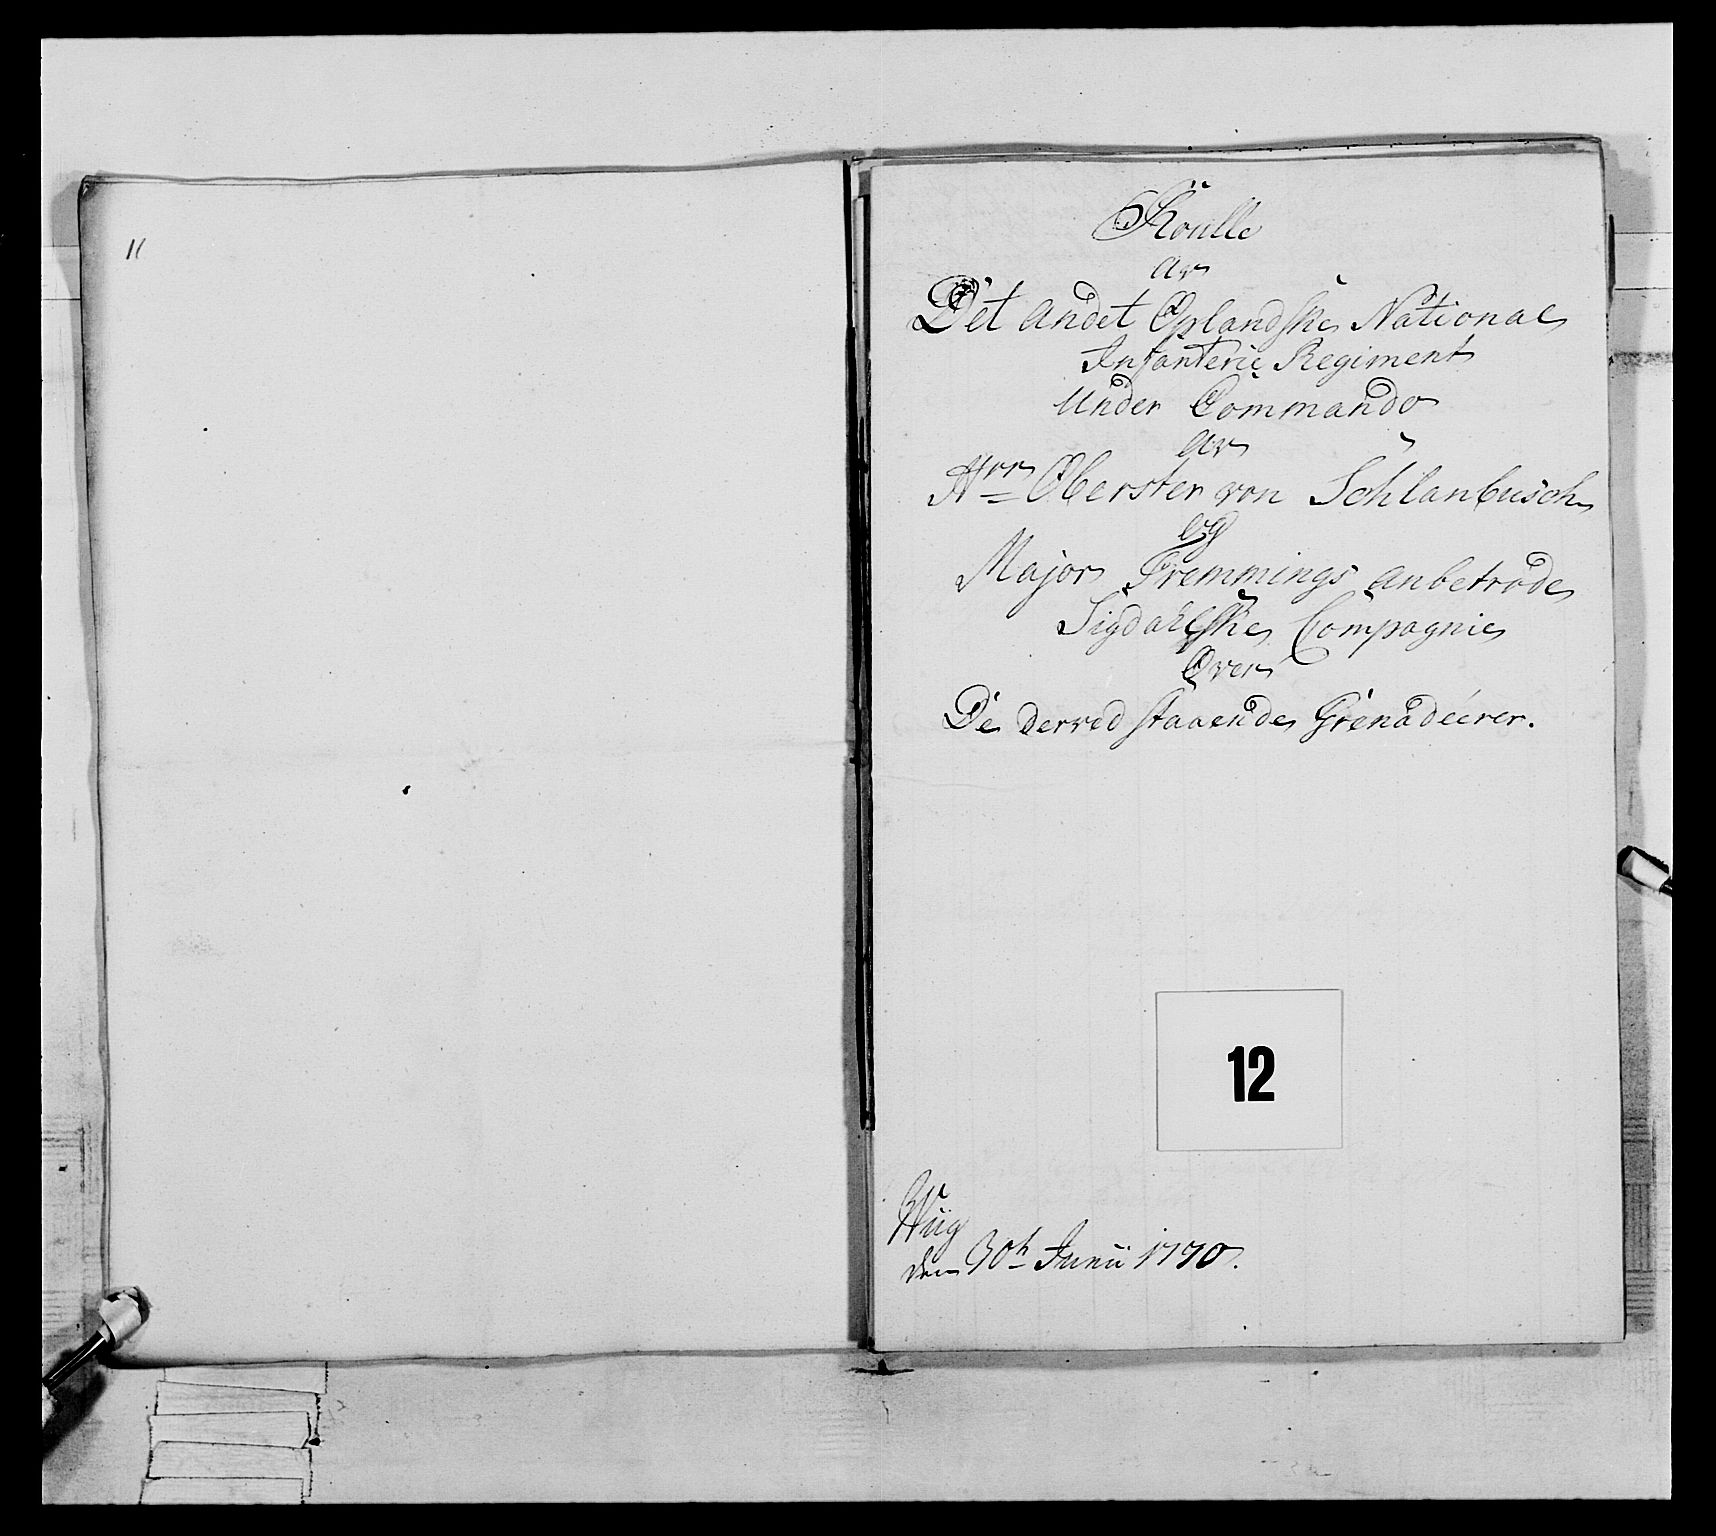 11
Roulle
av
Det andet Oplandske National
Infanterie Regiment
Under Commando
av
Hrr Oberster von Schlanbusch
og
Major Fremmings anbetrode
Sigdahlske Compagnie
Over
De derved staaende Grenadéerer.
12
Wiig
den 30h Junii 1770.